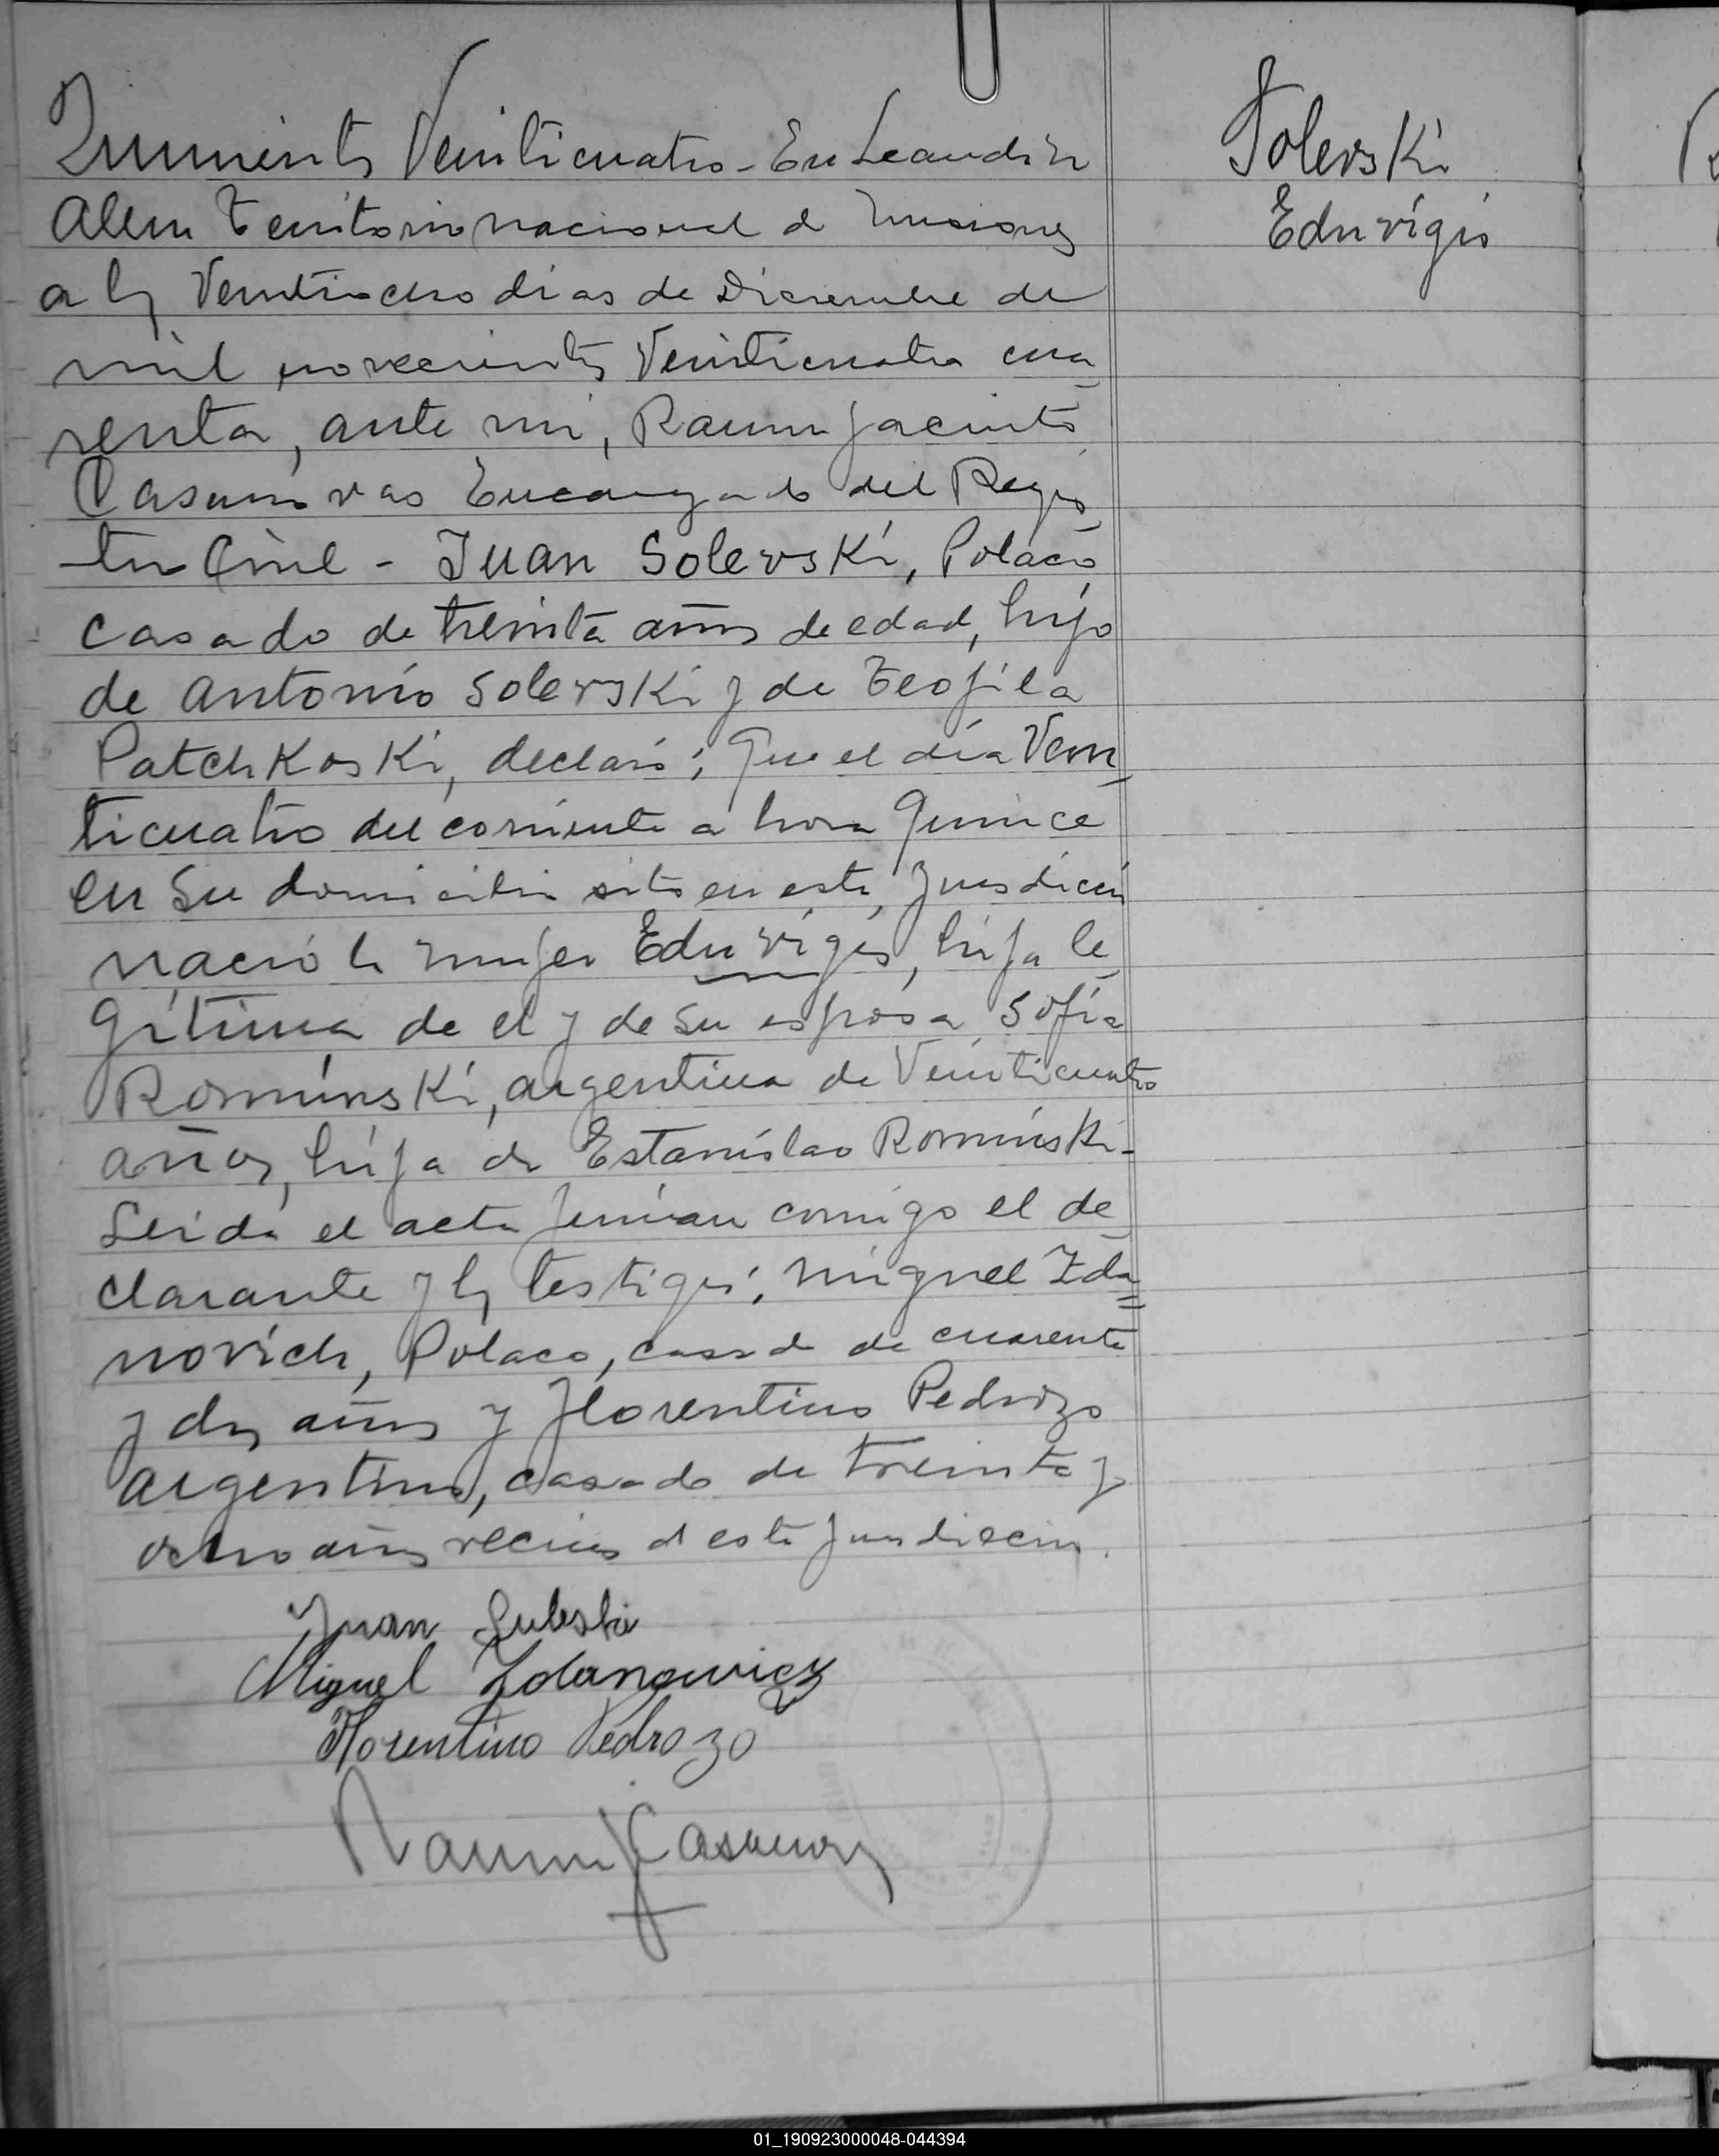 Quinientos Veinticuatro - En Leandro N
Alem Territorio nacional de Misiones
a los Veintiocho dias de Diciembre de
mil novecientos Veinticuatro cua
renta, ante mi, Ramon Jacinto
Casanovas Encargado del Regis
tro Civil - Juan Solevski, Polaco
casado de treinta años de edad, hijo
de Antonio Solevski y de Teofila
Patchkoski, declaró; Que el día Vein
ticuatro del corriente a hora Quince
en su domicilio sito en esta Jurisdicción
nació la mujer Eduvigis, hija le
gítima de el y de su esposa Sofía
Rominski, argentina de Veinticuatro
años, hija de Estanislao Rominski.
Leida el acta firman comigo el de
clarante y los testigos; Miguel Zda
novich, Polaco, casado de cuarenta
y dos años y Florentino Pedrozo
argentino, casado de treinta y
ocho años vecinos de esta Jurisdicción.
Juan Suleski
Miguel Zdanowicz
Florentino Pedrozo
Ramon J Casanovas
Solevski
Eduvigis
01_190923000048-044394